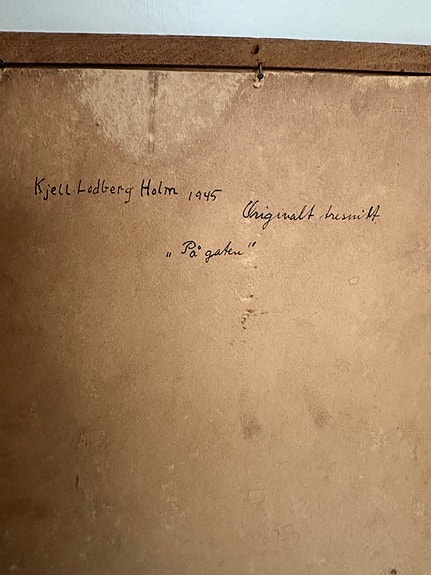 Kjell Lodberg Holm 1945
Originalt tresnitt
„ På gaten "